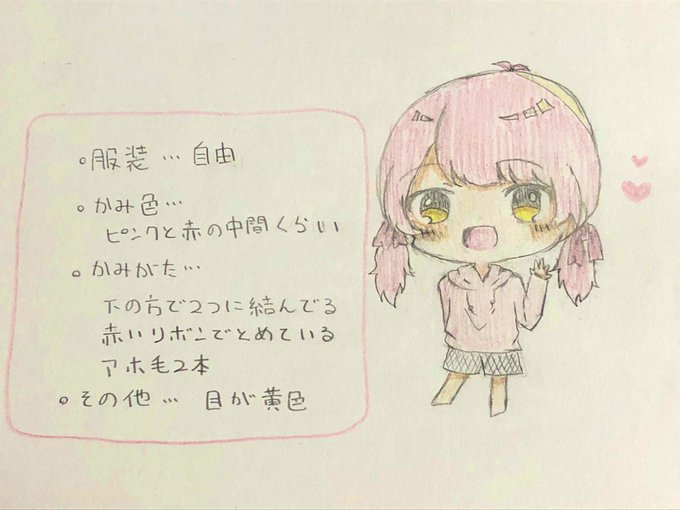 。服装… 自由
。かみ色…
ピンクと赤の中間くらい
。かみがた…
下の方で2つに結んでる
赤いリボンでとめている
アホ毛2本
。その他… 目が黄色